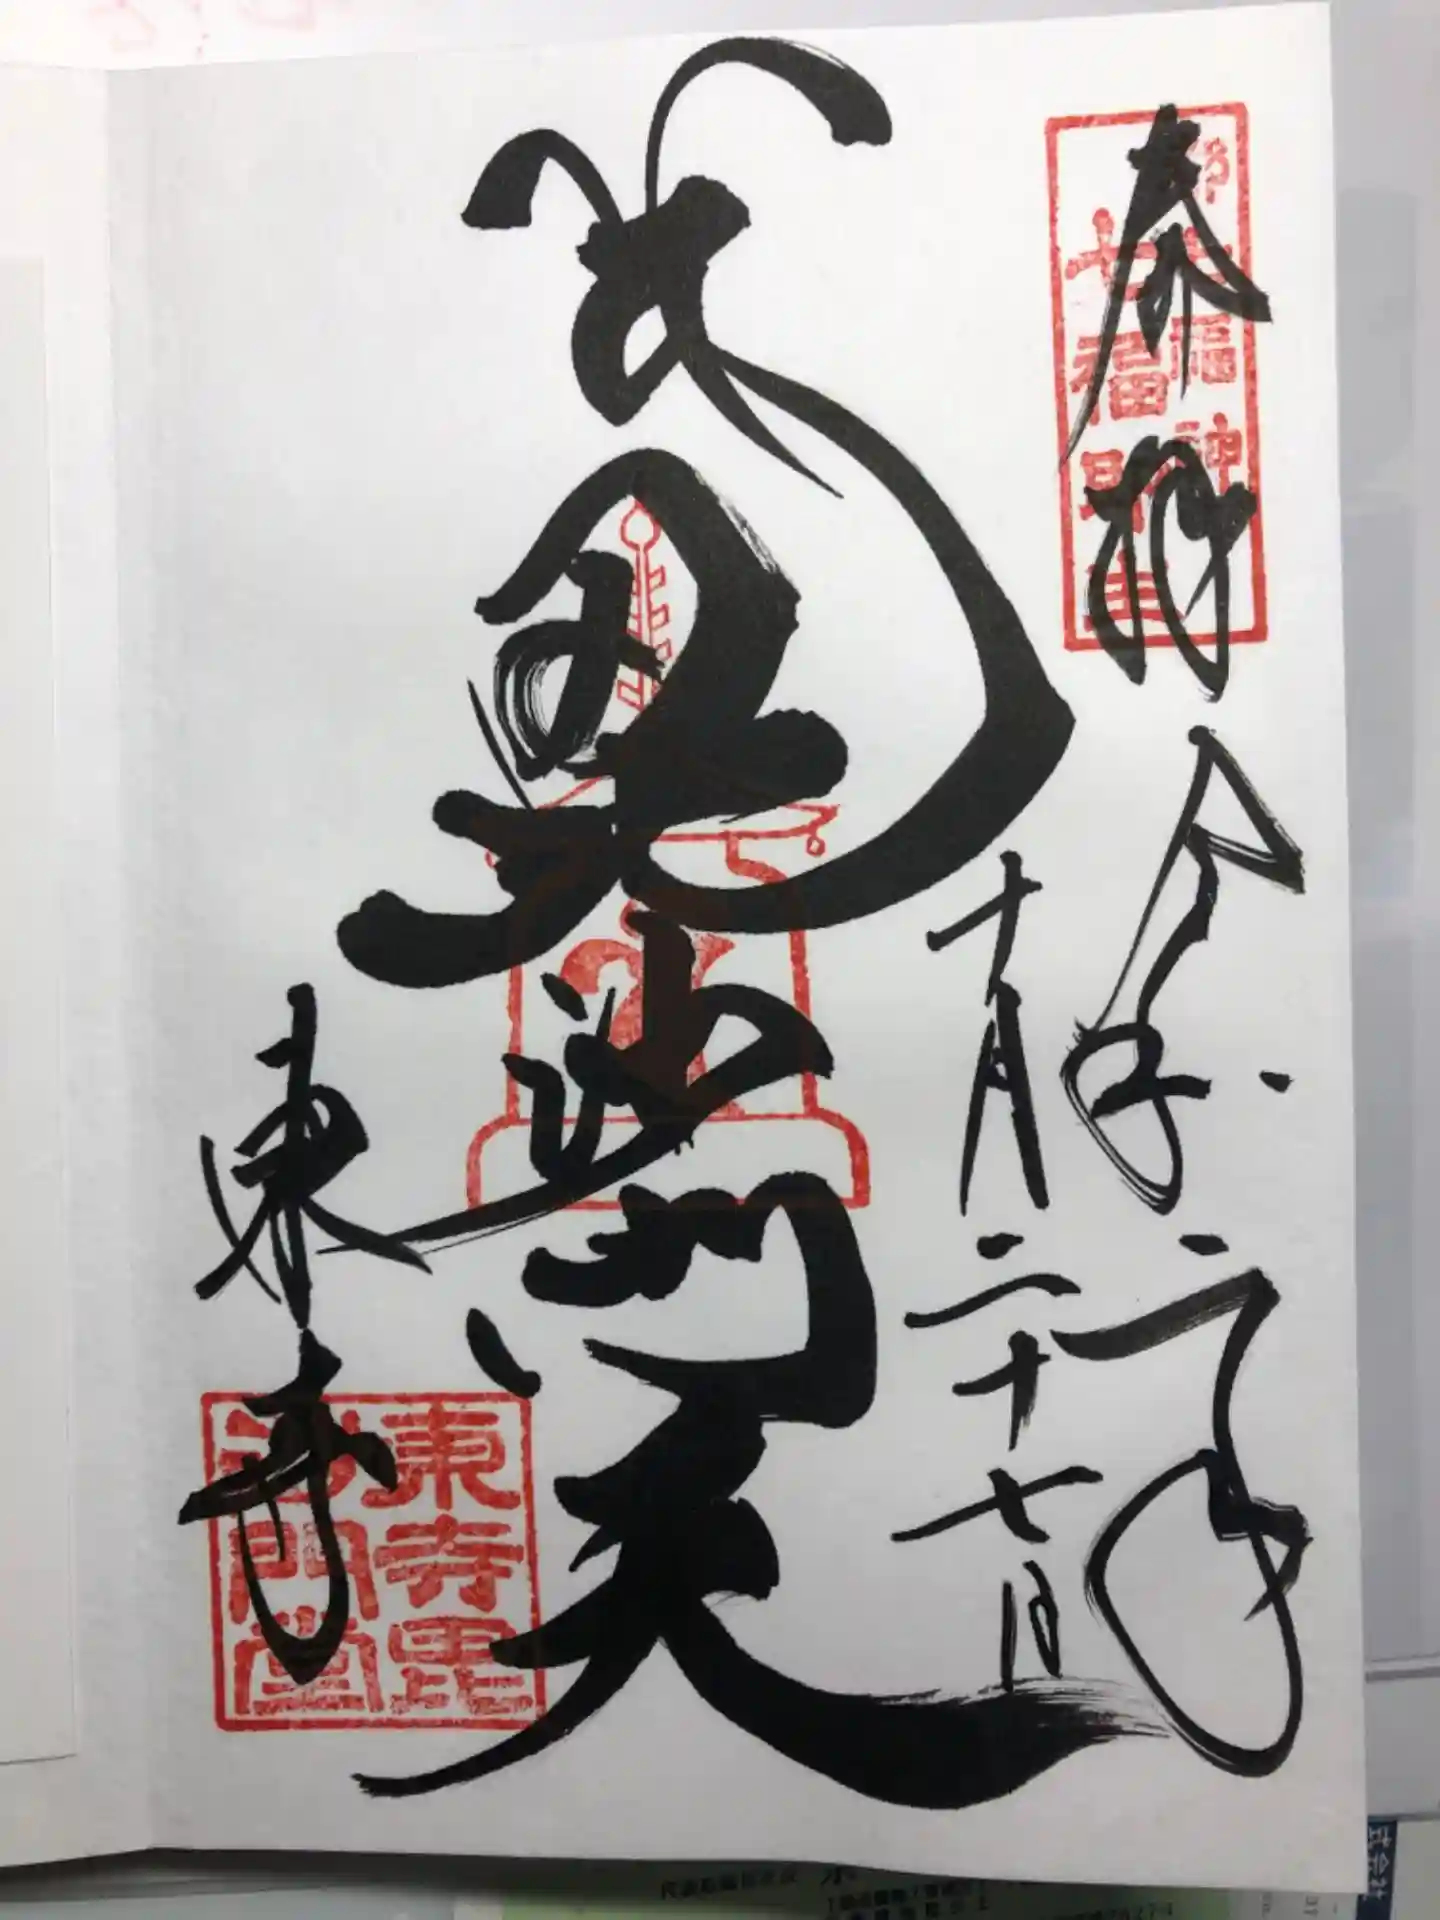 奉拝
都七福神
七福即生
令和二年
十月二十七日
毘沙門天
東寺
東寺毘
沙門堂